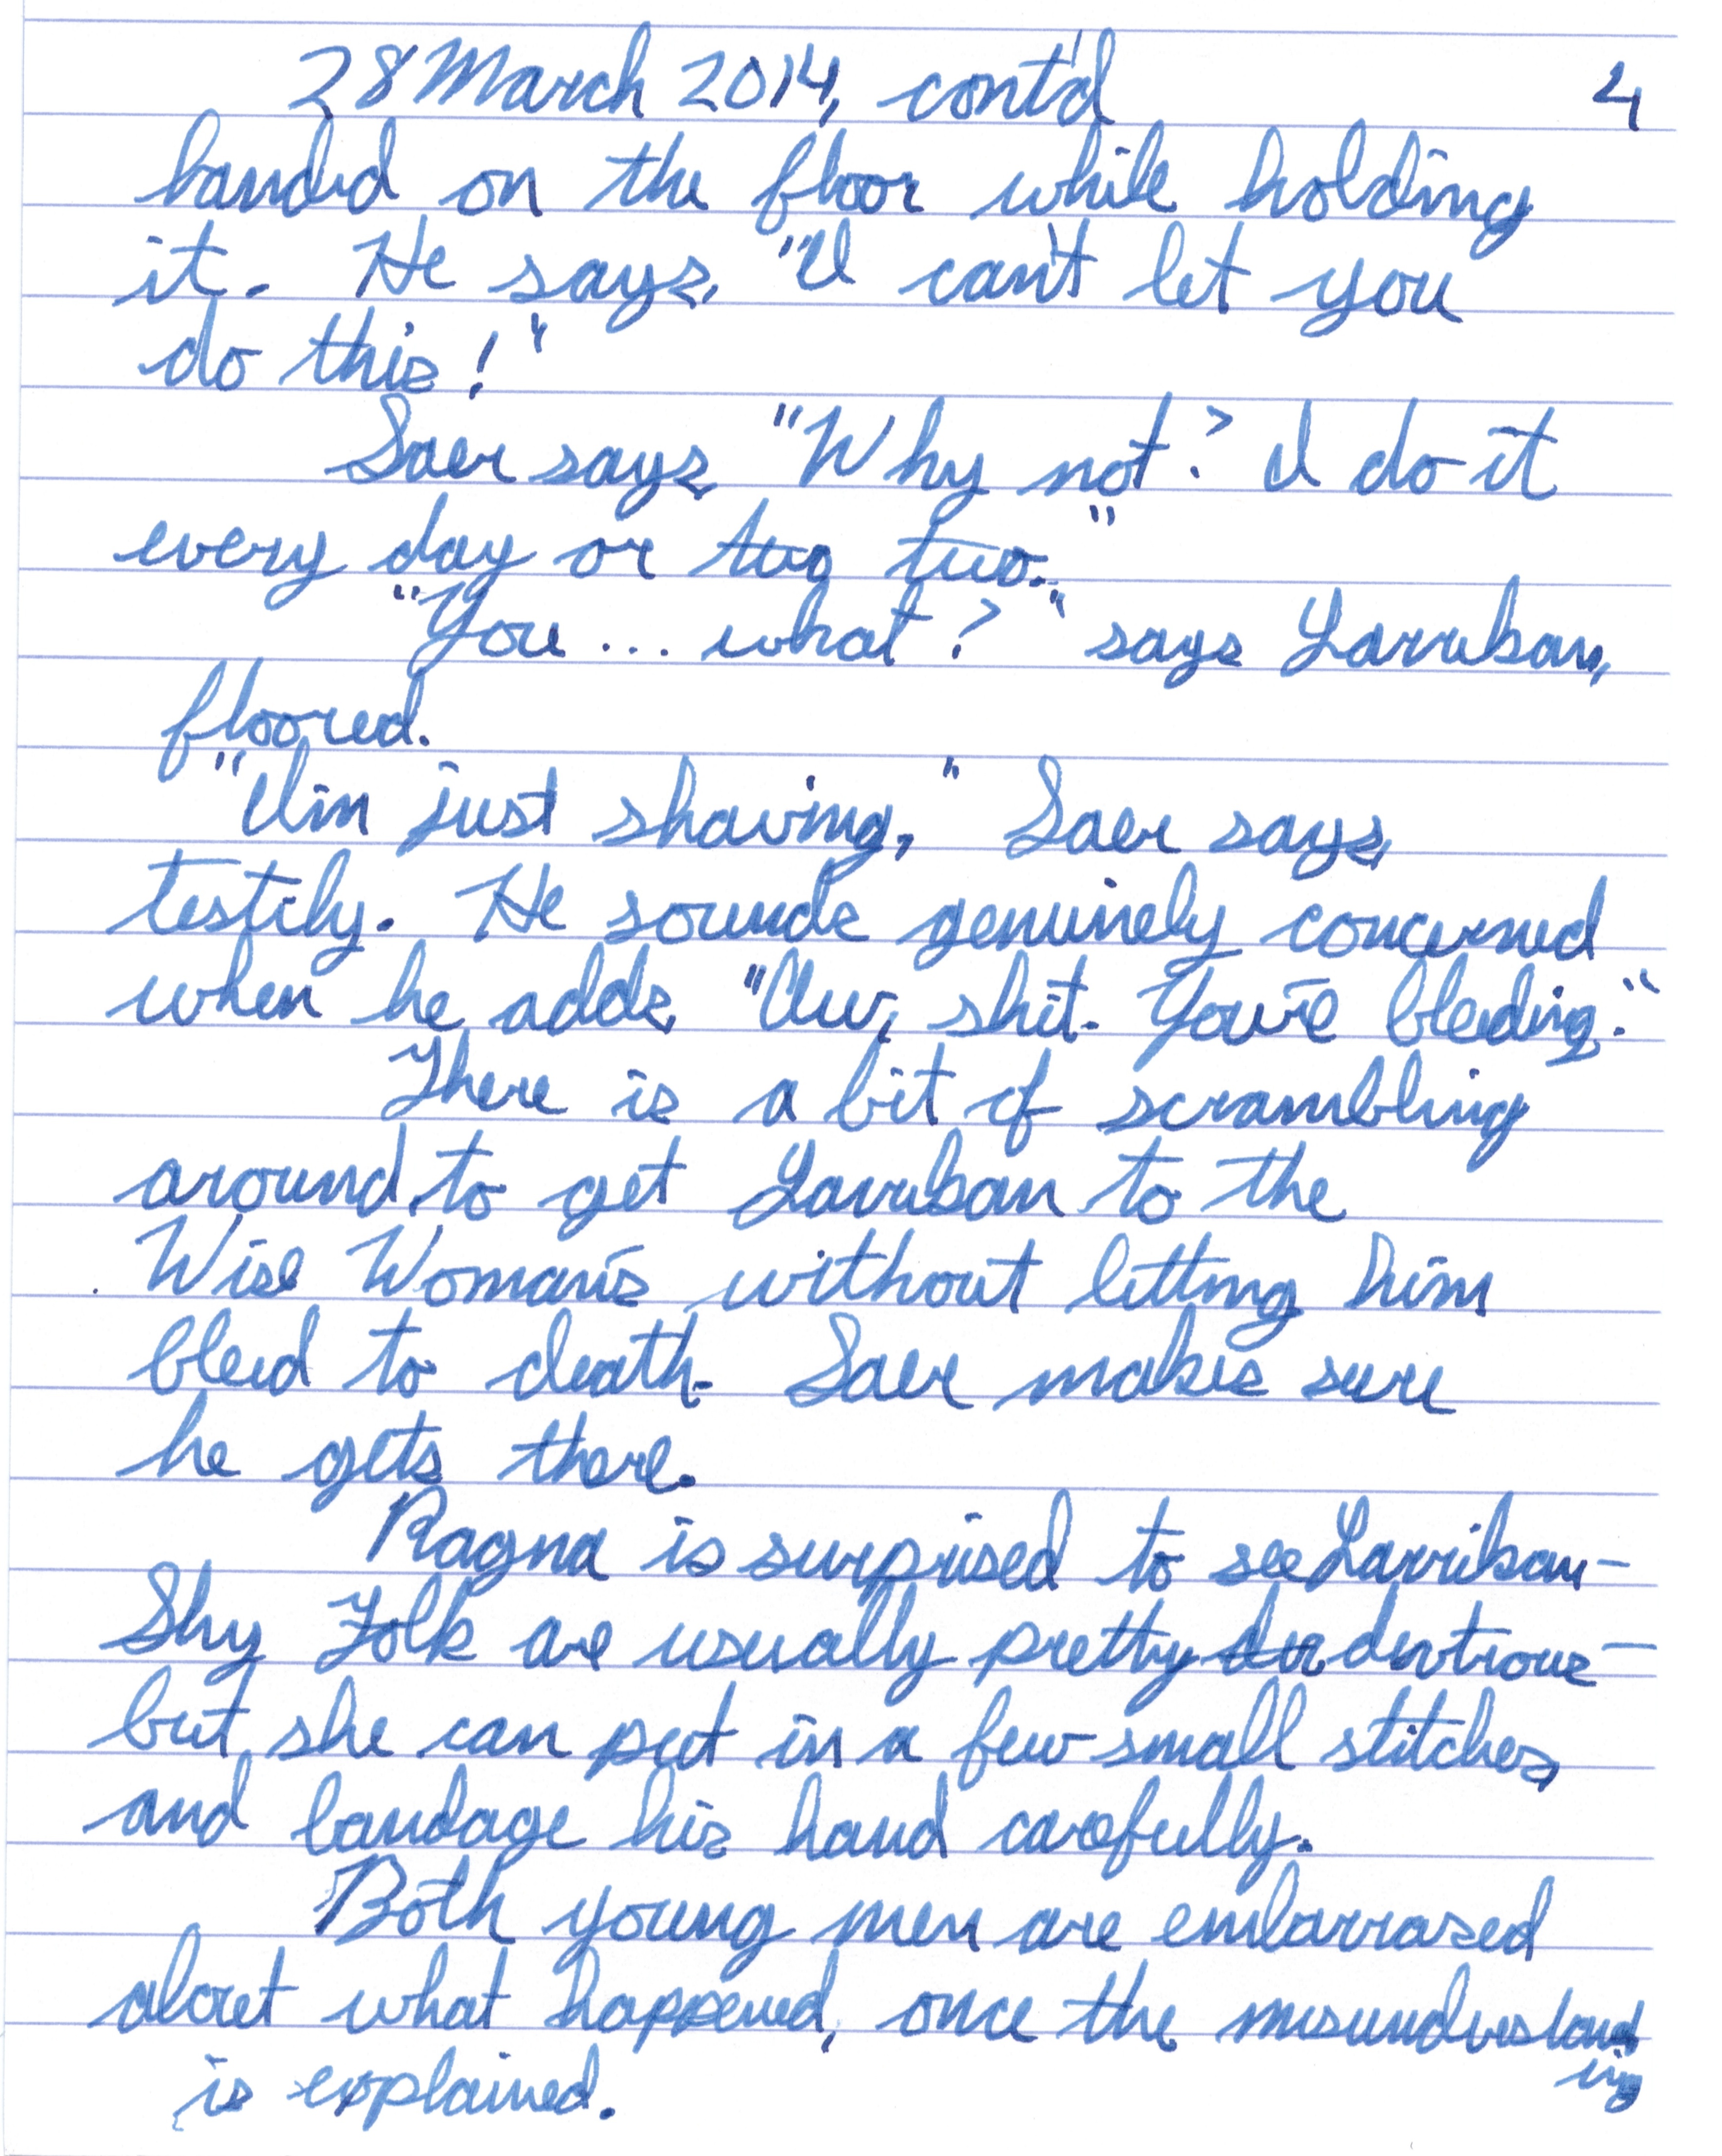 28 March 2014, cont'd 4
landed on the floor while holding
it. He says, "I can't let you
do this!"
Saer says, "Why not? I do it
every day or two two."
"You... what?" says Larriban,
floored.
"I'm just shaving," Saer says,
testily. He sounds genuinely concerned
when he adds, "Aw, shit. You're bleeding."
There is a bit of scrambling
around to get Larriban to the
Wise Woman's without letting him
bleed to death. Saer makes sure
he gets there.
Ragna is surprised to see Larriban—
Shy Folk are usually pretty dextrous—
but she can put in a few small stitches,
and bandage his hand carefully.
Both young men are embarrased
about what happened, once the misunderstand
ing
is explained.